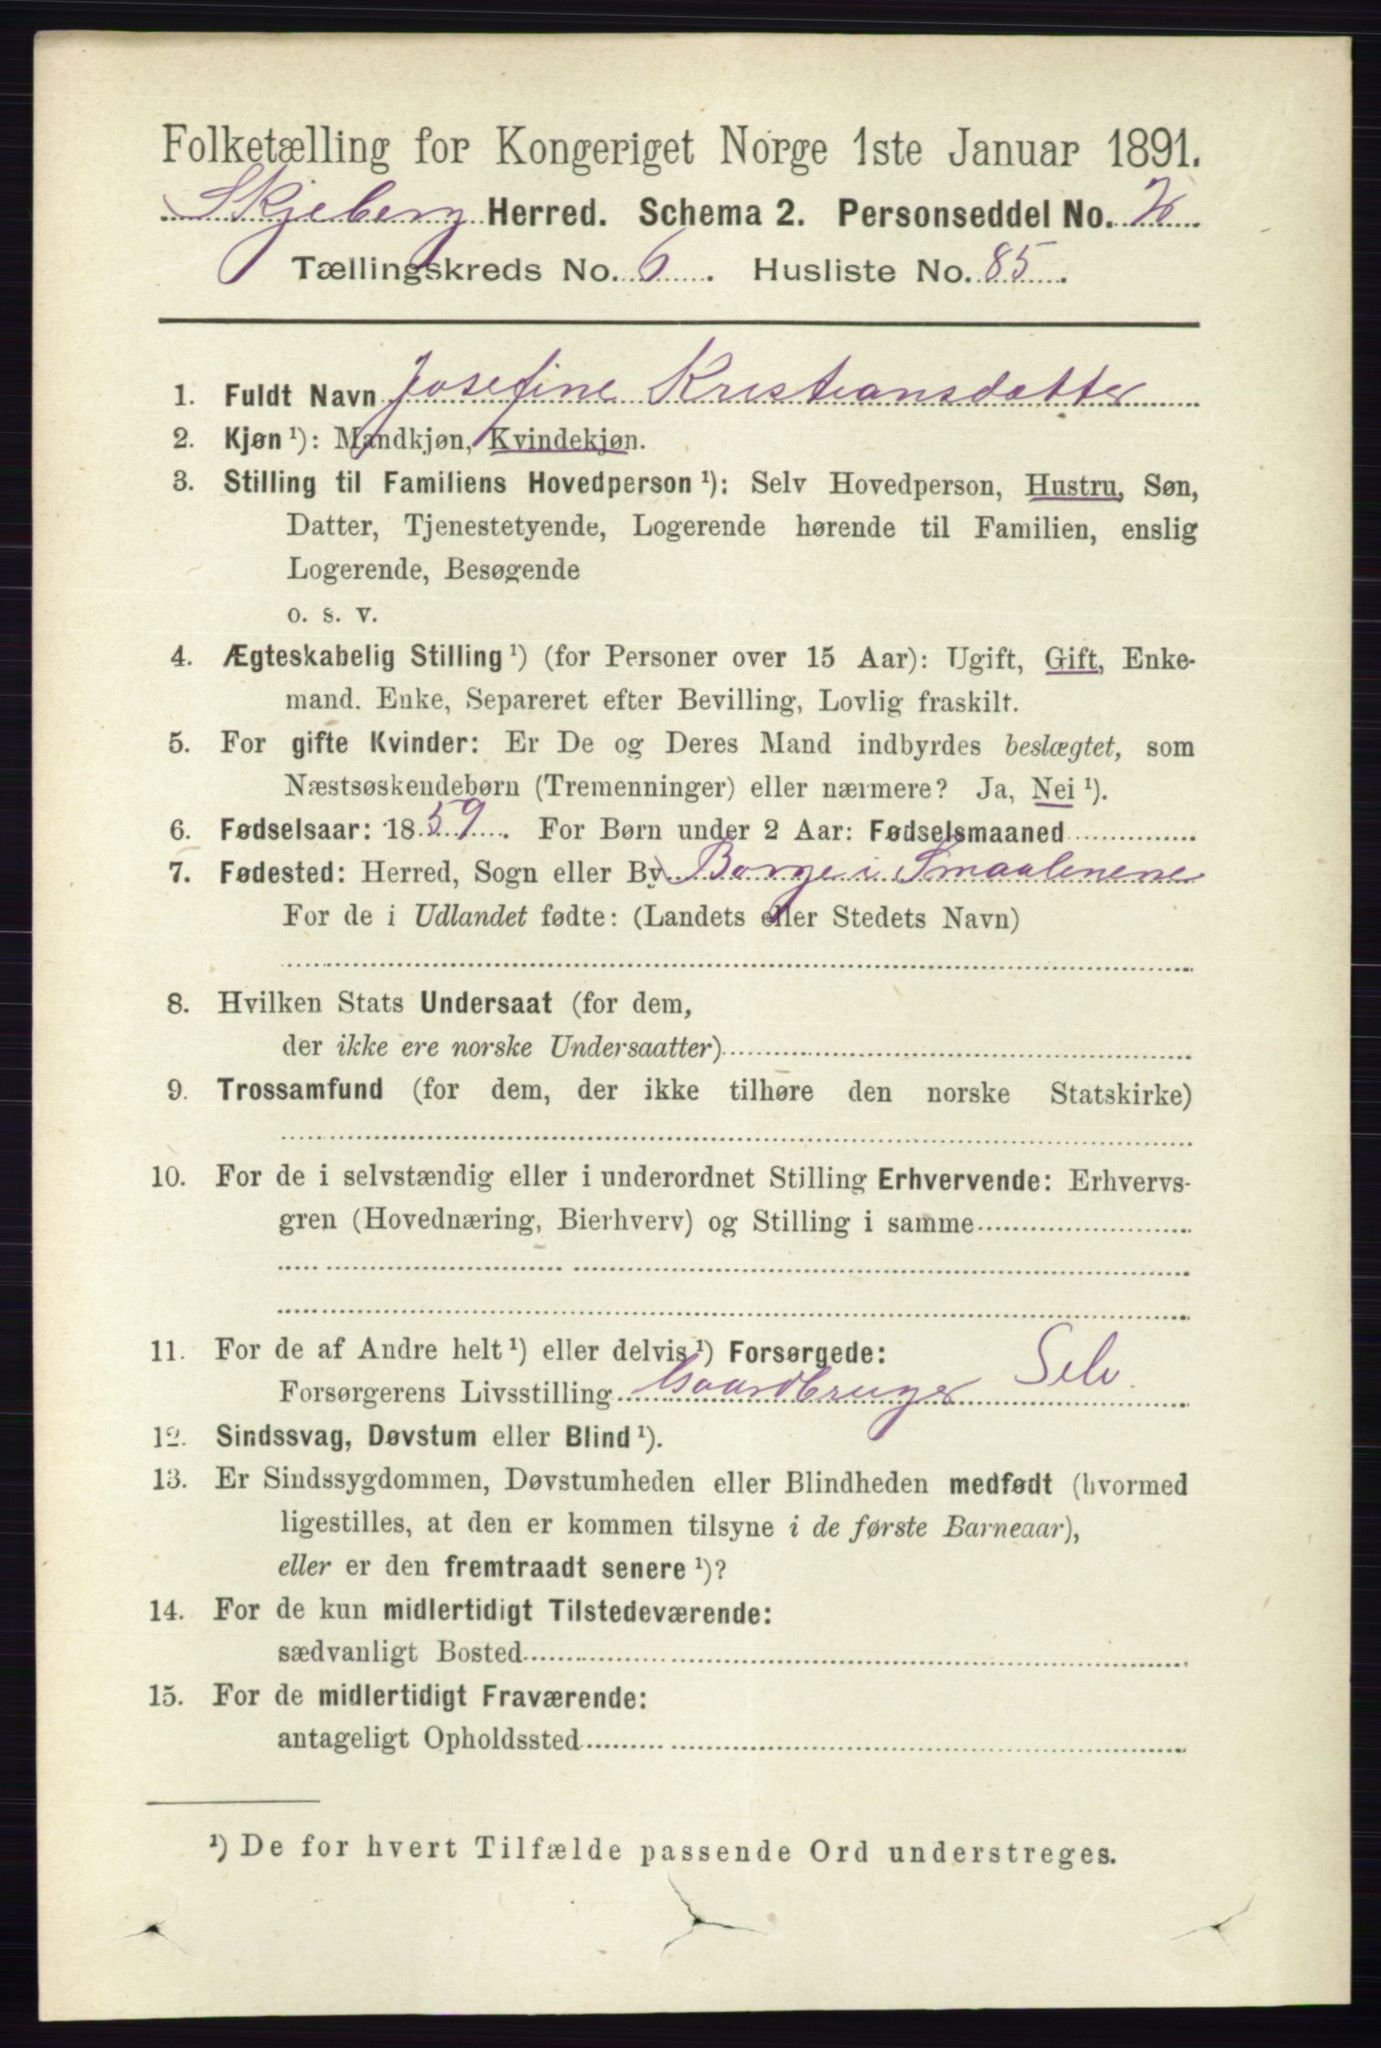 Folketælling for Kongeriget Norge 1ste Januar 1891.
Skjeberg Herred. Schema 2. Personseddel No. 2
Tællingskreds No. 6. Husliste No. 85.
1. Fuldt Navn Josefine Kristiansdatter
2. Kjøn ¹): Mandkjøn, Kvindekjøn.
3. Stilling til Familiens Hovedperson ¹): Selv Hovedperson, Hustru, Søn,
Datter, Tjenestetyende, Logerende hørende til Familien, enslig
Logerende, Besøgende
o. s. v.
4. Ægteskabelig Stilling ¹) (for Personer over 15 Aar): Ugift, Gift, Enke-
mand. Enke, Separeret efter Bevilling, Lovlig fraskilt.
5. For gifte Kvinder: Er De og Deres Mand indbyrdes beslægtet, som
Næstsøskendebørn (Tremenninger) eller nærmere? Ja, Nei ¹).
6. Fødselsaar: 1859. For Børn under 2 Aar: Fødselsmaaned
7. Fødested: Herred, Sogn eller By Borge i Smaalenene
For de i Udlandet fødte: (Landets eller Stedets Navn)
8. Hvilken Stats Undersaat (for dem,
der ikke ere norske Undersaatter)
9. Trossamfund (for dem, der ikke tilhøre den norske Statskirke)
10. For de i selvstændig eller i underordnet Stilling Erhvervende: Erhvervs-
gren (Hovednæring, Bierhverv) og Stilling i samme
11. For de af Andre helt ¹) eller delvis ¹) Forsørgede:
Forsørgerens Livsstilling Gaardbruger Selv.
12. Sindssvag, Døvstum eller Blind ¹).
13. Er Sindssygdommen, Døvstumheden eller Blindheden medfødt (hvormed
ligestilles, at den er kommen tilsyne i de første Barneaar),
eller er den fremtraadt senere ¹)?
14. For de kun midlertidigt Tilstedeværende:
sædvanligt Bosted
15. For de midlertidigt Fraværende:
antageligt Opholdssted
¹) De for hvert Tilfælde passende Ord understreges.